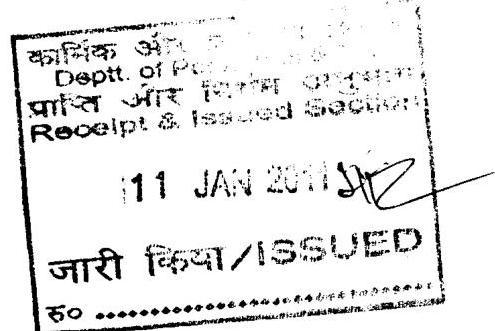 कार्मिक और
Deptt. of
प्राप्ति और अनुभाग
Receipt & Issued Section
11 JAN 2011
जारी किया/ISSUED
रु० ........................